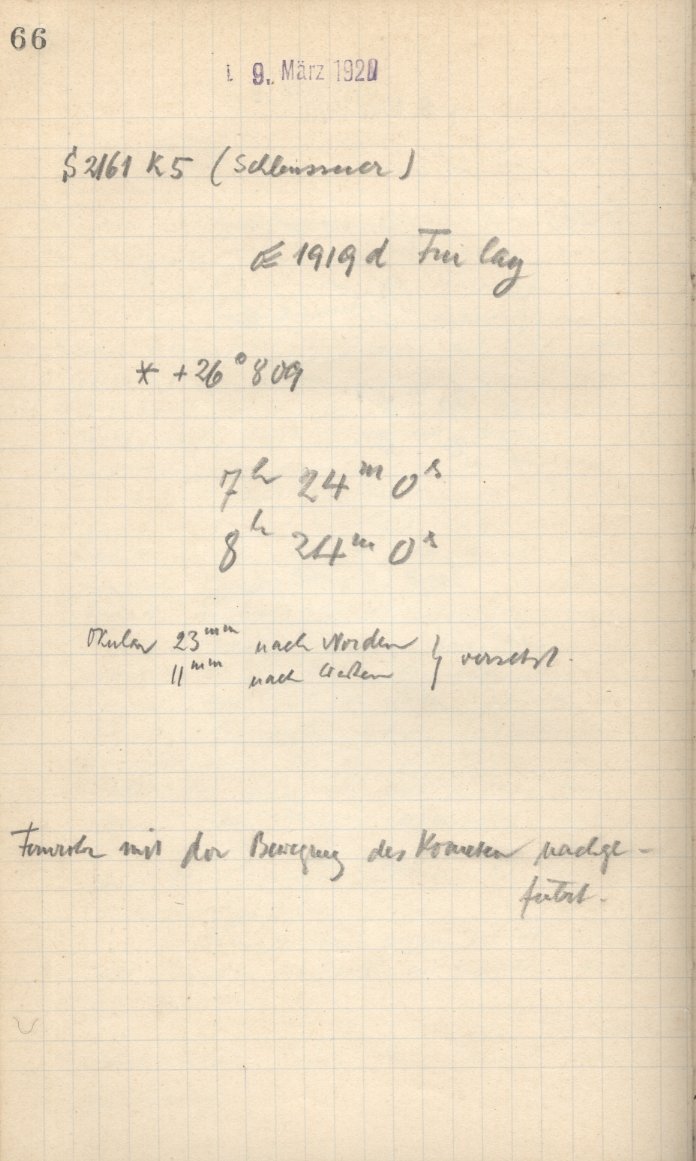 66
9. März 1920
S 2161 K5 (Schleussner)
1919 d Finlay
* +26° 809
7h 24m 0s
8h 24m 0s
Okular 23mm nach Norden
11mm nach Westen } versetzt.
Fernrohr mit der Bewegung des Kometen nachge-
führt.